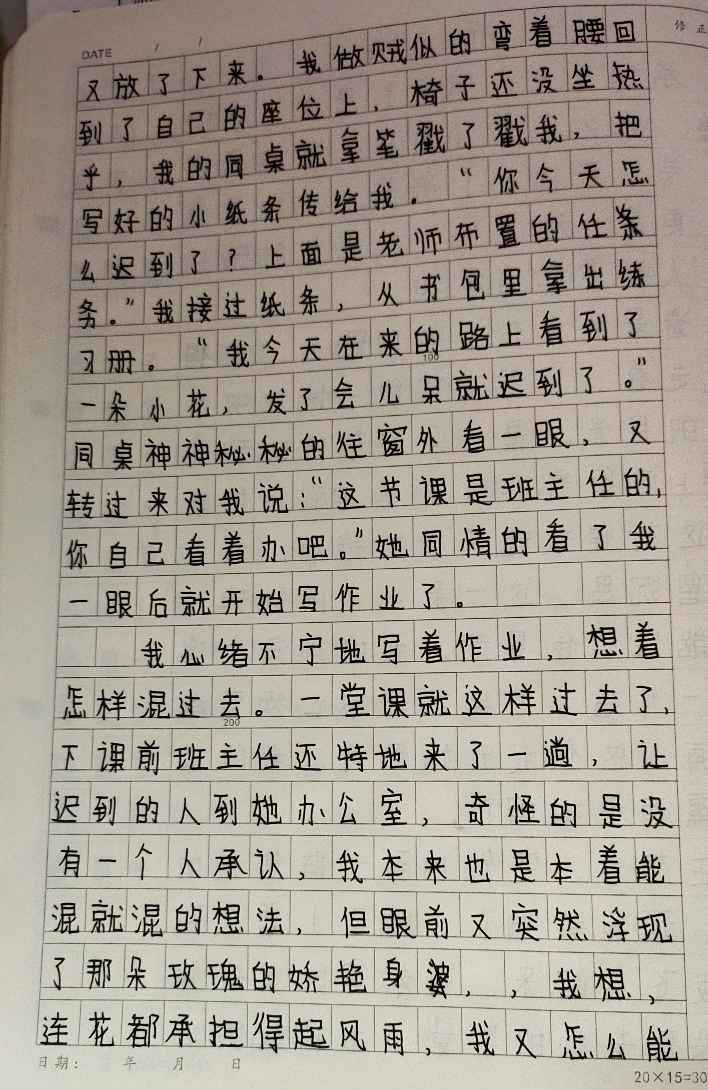 DATE / / 修正
又放了下来。我做贼似的弯着腰回
到了自己的座位上，椅子还没坐热
乎，我的同桌就拿笔戳了戳我，把
写好的小纸条传给我。“你今天怎
么迟到了？上面是老师布置的任条
务。”我接过纸条，从书包里拿出练
习册。“我今天在来的路上看到了
100
一朵小花，发了会儿呆就迟到了。”
同桌神神秘秘的往窗外看一眼，又
转过来对我说：“这节课是班主任的，
你自己看着办吧。”她同情的看了我
一眼后就开始写作业了。
我心绪不宁地写着作业，想着
怎样混过去。一堂课就这样过去了，
200
下课前班主任还特地来了一趟，让
迟到的人到她办公室，奇怪的是没
有一个人承认，我本来也是本着能
混就混的想法，但眼前又突然浮现
了那朵玫瑰的娇艳身，，我想，
连花都承担得起风雨，我又怎么能
日期： 年 月 日
20×15=30